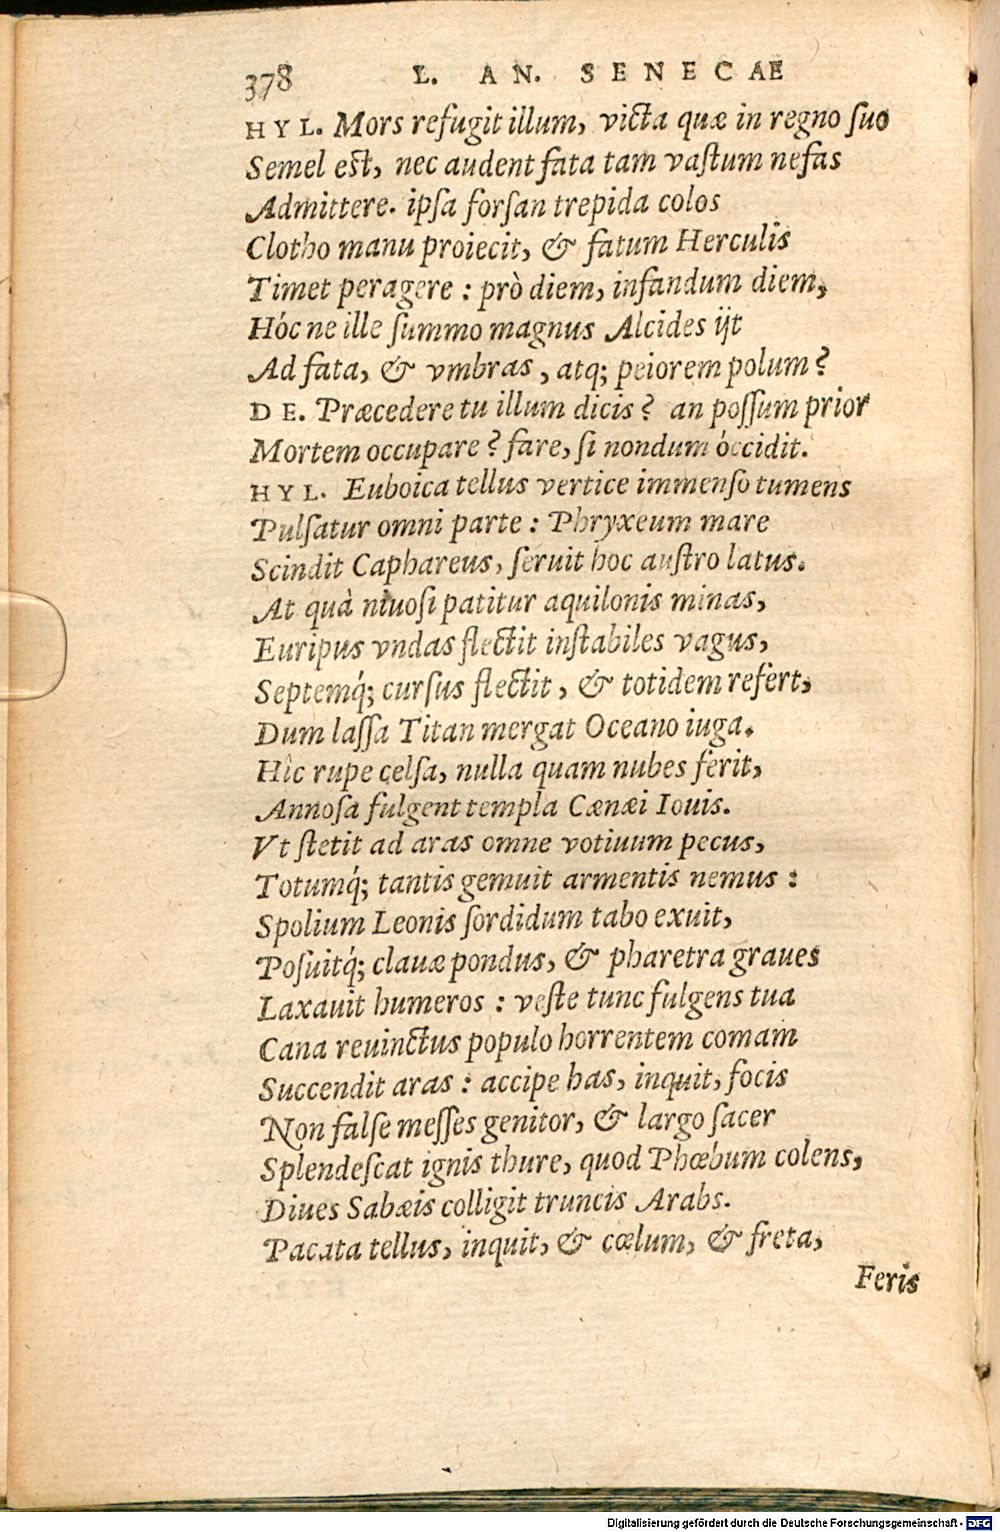 378 L. AN. SENECAE
HYL. Mors refugit illum, victa quæ in regno ſuo
Semel est, nec audent fata tam vaſtum nefas
Admittere. ipſa forſan trepida colos
Clotho manu proiecit, & fatum Herculis
Timet peragere : prò diem, infandum diem,
Hóc ne ille ſummo magnus Alcides ijt
Ad fata, & vmbras, atq; peiorem polum?
DE. Præcedere tu illum dicis? an poſſum prior
Mortem occupare? fare, ſi nondum óccidit.
HYL. Euboica tellus vertice immenſo tumens
Pulſatur omni parte : Phryxeum mare
Scindit Caphareus, ſeruit hoc auſtro latus.
At quà niuoſi patitur aquilonis minas,
Euripus vndas flectit inſtabiles vagus,
Septemq́; curſus flectit, & totidem refert,
Dum laſſa Titan mergat Oceano iuga.
Hìc rupe celſa, nulla quam nubes ferit,
Annoſa fulgent templa Cænæi Iouis.
Vt ſtetit ad aras omne votiuum pecus,
Totumq́; tantis gemuit armentis nemus :
Spolium Leonis ſordidum tabo exuit,
Poſuitq́; clauæ pondus, & pharetra graues
Laxauit humeros : veſte tunc fulgens tua
Cana reuinctus populo horrentem comam
Succendit aras : accipe has, inquit, focis
Non falſe meſſes genitor, & largo ſacer
Splendeſcat ignis thure, quod Phœbum colens,
Diues Sabæis colligit truncis Arabs.
Pacata tellus, inquit, & cœlum, & freta,
Feris
Digitalisierung gefördert durch die Deutsche Forschungsgemeinschaft - DFG